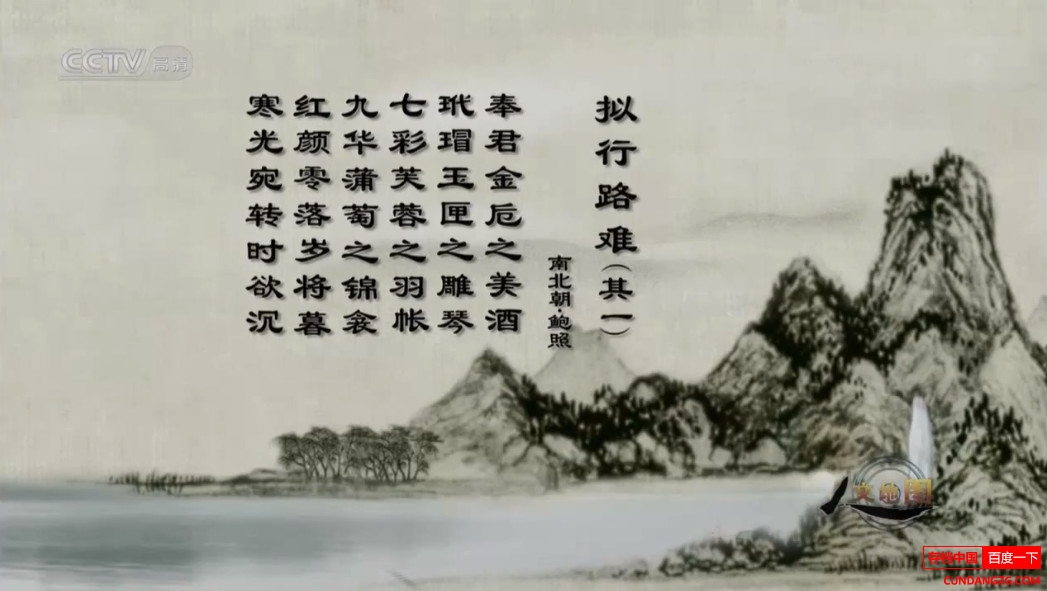 CCTV 高清
拟行路难（其一）
南北朝·鲍照
奉君金卮之美酒
玳瑁玉匣之雕琴
七彩芙蓉之羽帐
九华蒲萄之锦衾
红颜零落岁将暮
寒光宛转时欲沉
地图
百度一下
CUNDANGZG.COM